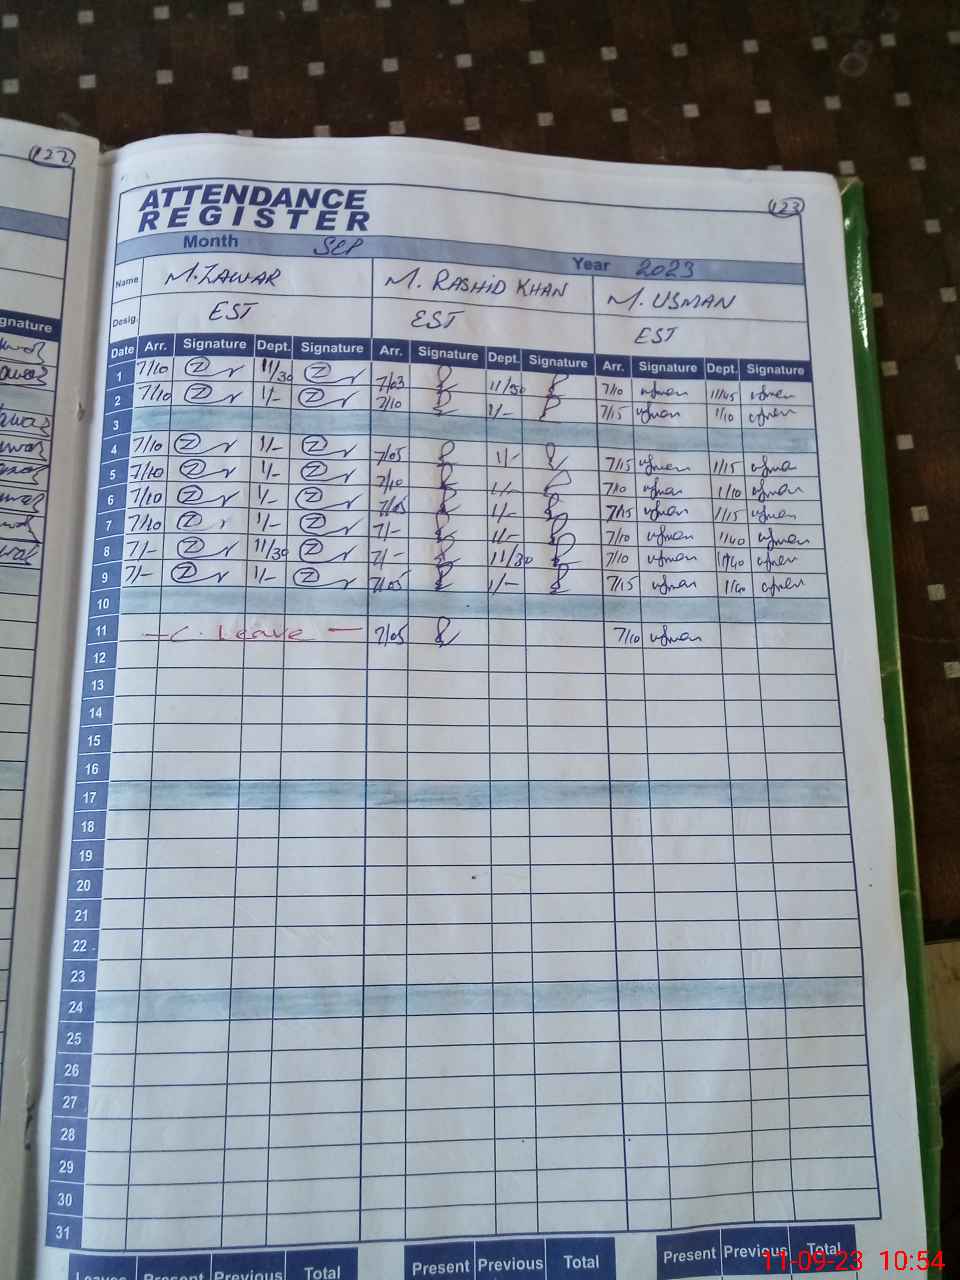 122
gnature
123
ATTENDANCE
REGISTER
Month SEP Year 2023
Name M. ZAWAR M. RASHID KHAN M. USMAN
Desig. EST EST EST
Date Arr. Signature Dept. Signature Arr. Signature Dept. Signature Arr. Signature Dept. Signature
1 7/10 Z 11/30 Z 7/03 11/30 7/10 usman 11/45 usman
2 7/10 Z 1/- Z 7/10 1/- 7/15 usman 1/10 usman
3
4 7/10 Z 1/- Z 7/05 1/- 7/15 usman 1/15 usman
5 7/10 Z 1/- Z 7/10 1/- 7/10 usman 1/10 usman
6 7/10 Z 1/- Z 7/05 1/- 7/15 usman 1/15 usman
7 7/10 Z 1/- Z 7/- 1/- 7/10 usman 1/40 usman
8 7/- Z 11/30 Z 7/- 11/30 7/10 usman usman
9 7/- Z 1/- Z 7/05 1/- 7/15 usman 1/40 usman
10
11 - C. Leave - 7/05 7/10 usman
12
13
14
15
16
17
18
19
20
21
22
23
24
25
26
27
28
29
30
31
Leaves Present Previous Total Present Previous Total Present Previous Total
11-09-23 10:54